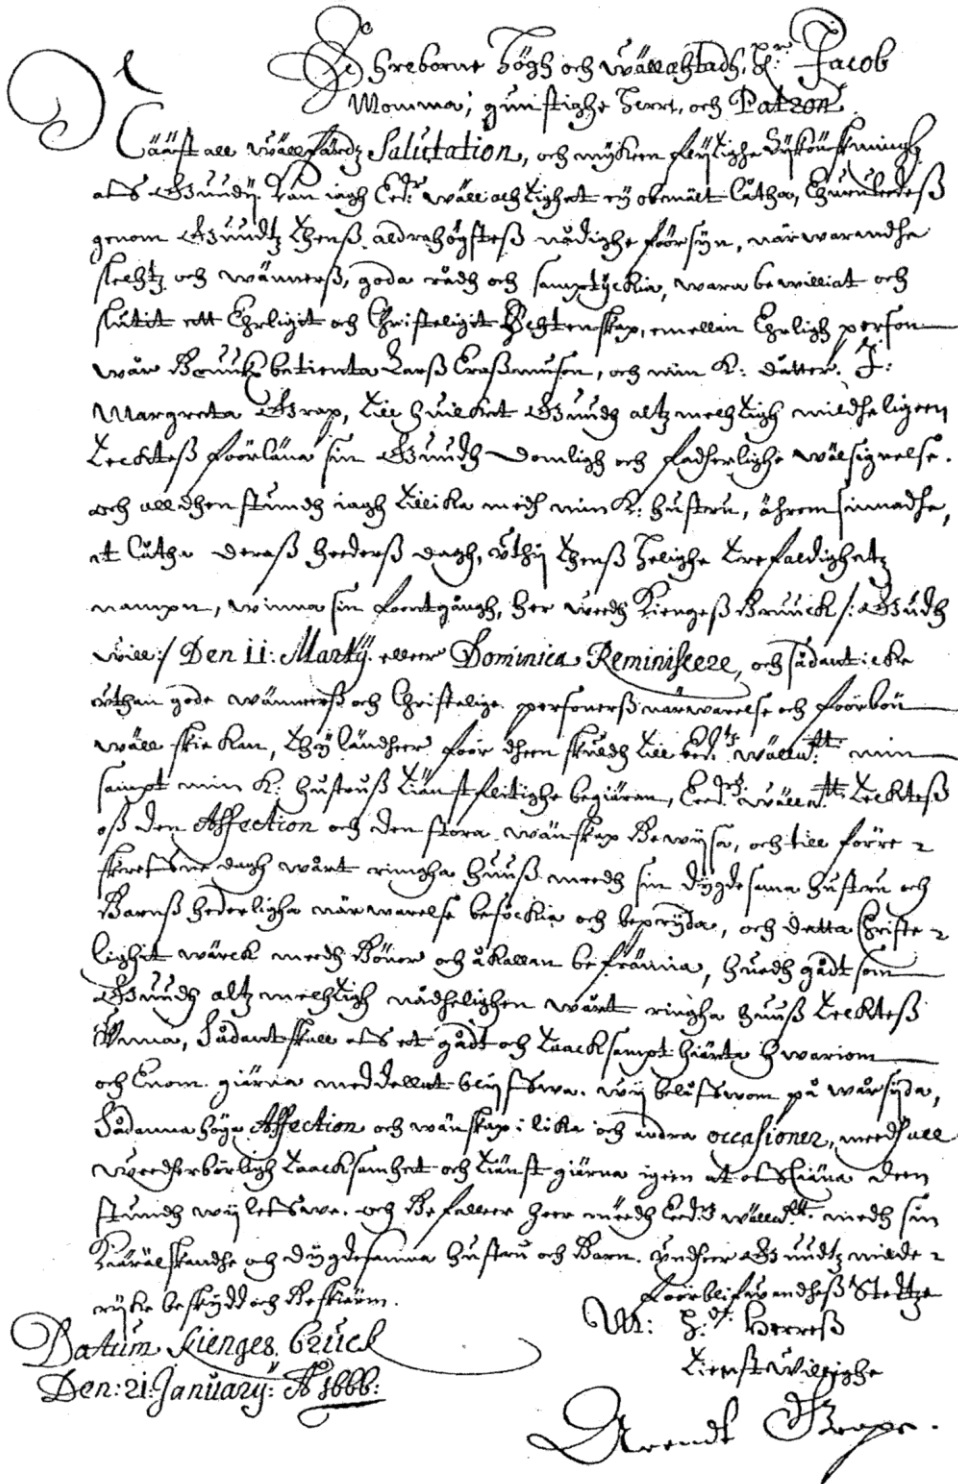 Ehreborne Högh och wällachtadh, H:r Jacob
Momma, gunstighe Herre, och Patron
Näst all wällfärdz Salutation, och mÿken flÿtighe
aff Gudj kan iagh Ed:r wällachtighet eÿ obemält låtha, Ehuruledeß
genom Gudtz thenß aldrahögsteß nådighe försÿn, närwarandhe
slechtz och wännerß, goda rådh och samptÿckia, wara bewilliat och
slutit ett Ehrligit och Christeligit Echtenskap, emellan Ehrligh person
wår Bruukz betienta Larß Eraßmuson, och min K: dåtter. J:
Margreta Grap, till huilket Gudh altzmechtigh mildheligen
teckteß förläna sin Gudhdomligh och fadherlighe wälsignelse.
och alldhenstundh iagh tillika medh min K: hustru, ährom sinnadhe,
at låtha deraß hederß dagh, uthj thenß helighe trefaldighetz
nampn, winna sin foortgångh, her wedh Kiengeß Bruuck /: Gudh
will:/ Den 11: Martÿ. eller Dominica Reminiscere, och sådant icke
uthan gode wännerß och Christelige personerß närwarelse och förbön
wäll skie kan, thÿ länder för dhen skuldh till Ed:r wälla:tt min
sampt min K: hustruß tiänstflitighe begiäran, Ed:r wälla:tt teckteß
oß den Affection och den stora wänskap Bewÿsa, och till förre-
skrefne dagh wårt ringha huuß medh sin dÿgdesama hustru och
Barnß hederligha närwarelse besöckia och beprÿda, och detta Christe-
lighit wärck medh Böner och åkallan befrämia, huadh gådt som
Gudh altzmechtigh nådhelighen wårt ringha huuß teckteß
Unna, Sådant skall aff et gådt och taacksampt hiärta hwariom
och Enom giärna meddellat bliffwa. wÿ beloffwom på wår sÿda,
Sådanna höga Affection och wänskap i lika och andra occasioner, medh all
wedherbörligh taacksamhet och tiänst giärna igen at förtiäna den
stundh wÿ leffwa. och Befaller her medh Ed:r wälla:tt. medh sin
Kiäräl­skandhe och dÿgdesamma hustru och Barn. undher Gudtz milde-
rÿke beskÿdd och Beskiärm. förblifwandheß Stedtze
M: H:r Herreß
Datum Kienges bruck tienstwillighe
Den: 21: January: A:o 1666:
Arendt Grape.